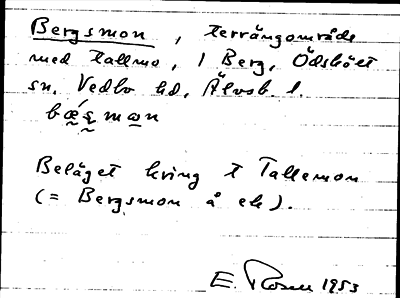 Bergsmon, terrängområde
med tallmo, i Berg, Ödskölt
sn. Vedbo hd, Älvsb. l.
Beläget kring t Tallemon
(= Bergsmon å ek).
E. Rosell 1953